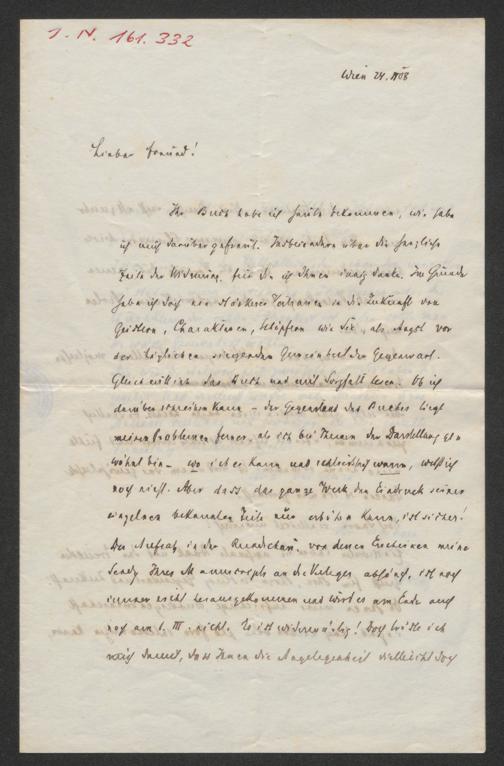 I. N. 161.332
Wien 24. II 08
Lieber Freund!
Ihr Buch habe ich heute bekommen, wie habe
ich mich darüber gefreut. Insbesondere über die herzliche
Zeile der Widmung, für die ich Ihnen innig danke. Im Grunde
habe ich doch nur stärkeres Vertrauen in die Zukunft von
Geistern, Charakteren, Schöpfern wie Sie, als Angst vor
der täglichen siegenden Gegenwart.
Gleich will ich das Buch und mit Sorgfalt lesen. Ob ich
darüber schreiben kann – der Gegenstand des Buches liegt
meinen Problemen ferner, als ich bei Ihnen der Darstellung ge-
wöhnt bin – wo ich es kann und wann, weiß ich
noch nicht. Aber dass das ganze Werk den Eindruck seiner
einzelnen bekannten Teile nur erhöhen kann, ist sicher!
Der Aufsatz in der Rundschau von dessen Erscheinen meine
Sendg Ihres Manuscripts an die Verleger abhängt, ist noch
immer nicht herausgekommen und wird es am Ende auch
noch am 1. III. nicht. Es ist widerwärtig! Doch tröste ich
mich damit, dass Ihnen die Angelegenheit vielleicht doch